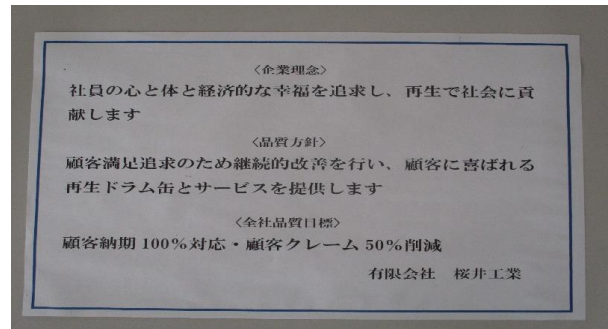 〈企業理念〉
社員の心と体と経済的な幸福を追求し、再生で社会に貢
献します
〈品質方針〉
顧客満足追求のため継続的改善を行い、顧客に喜ばれる
再生ドラム缶とサービスを提供します
〈全社品質目標〉
顧客納期100%対応・顧客クレーム50%削減
有限会社　桜井工業